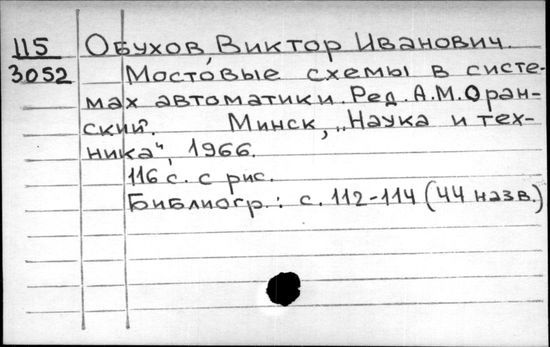 115 Обухов, Виктор Иванович.
3052 Мостовые схемы в систе-
мах автоматики. Ред. А.М.Оран-
ский. Минск, „Наука и тех-
ника", 1966.
116 с. с рис.
Библиогр.: с. 112-114 (44 назв.)